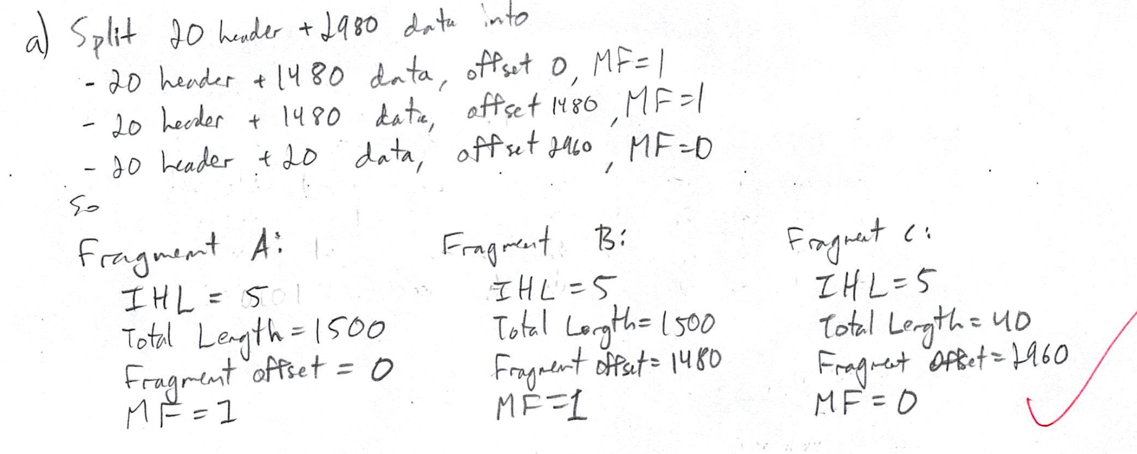 a) Split 20 header + 2980 data into
- 20 header + 1480 data, offset 0, MF=1
- 20 header + 1480 data, offset 1480, MF=1
- 20 header + 20 data, offset 2960, MF=0
So
Fragment A:
IHL = 5
Total Length = 1500
Fragment offset = 0
MF = 1
Fragment B:
IHL = 5
Total Length = 1500
Fragment offset = 1480
MF=1
Fragment C:
IHL = 5
Total Length = 40
Fragment offset = 2960
MF = 0